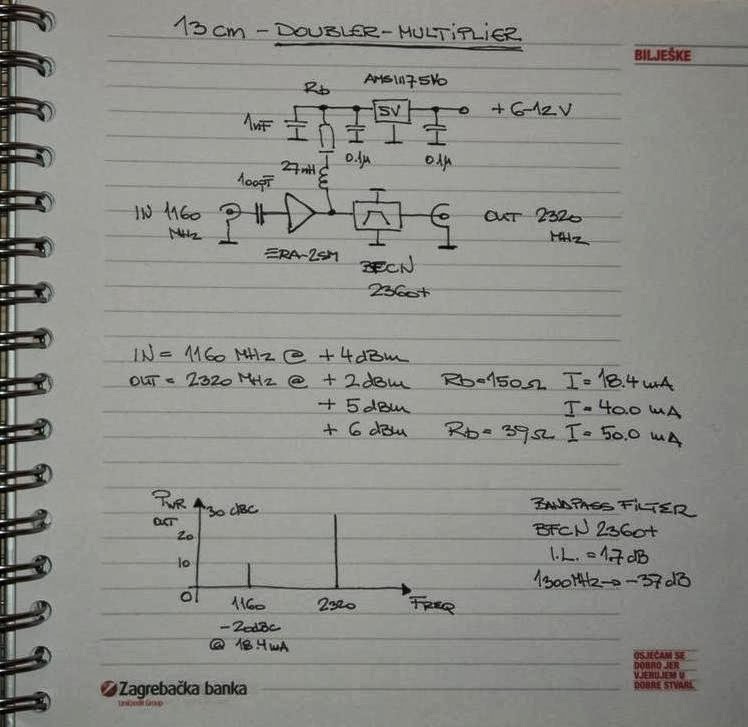 13 cm - DOUBLER-MULTIPLIER
BILJEŠKE
AMS1117 5V0
Rb
1nF
5V
+ 6-12 V
0.1µ
0.1µ
27nH
100pF
IN 1160 MHz
OUT 2320 MHz
ERA-2SM
BFCN
2360+
IN = 1160 MHz @ + 4dBm
OUT = 2320 MHz @ + 2dBm Rb=150Ω I=18.4 mA
+ 5dBm I=40.0 mA
+ 6 dBm Rb= 39Ω I=50.0 mA
PWR OUT
30 dBC
20
10
0
1160
2320
FREQ
-20dBC
@ 18.4mA
BANDPASS FILTER
BFCN 2360+
I.L. = 1.7 dB
1300MHz → -37 dB
Zagrebačka banka
UniCredit Group
OSJEĆAM SE
DOBRO JER
VJERUJEM U
DOBRE STVARI.